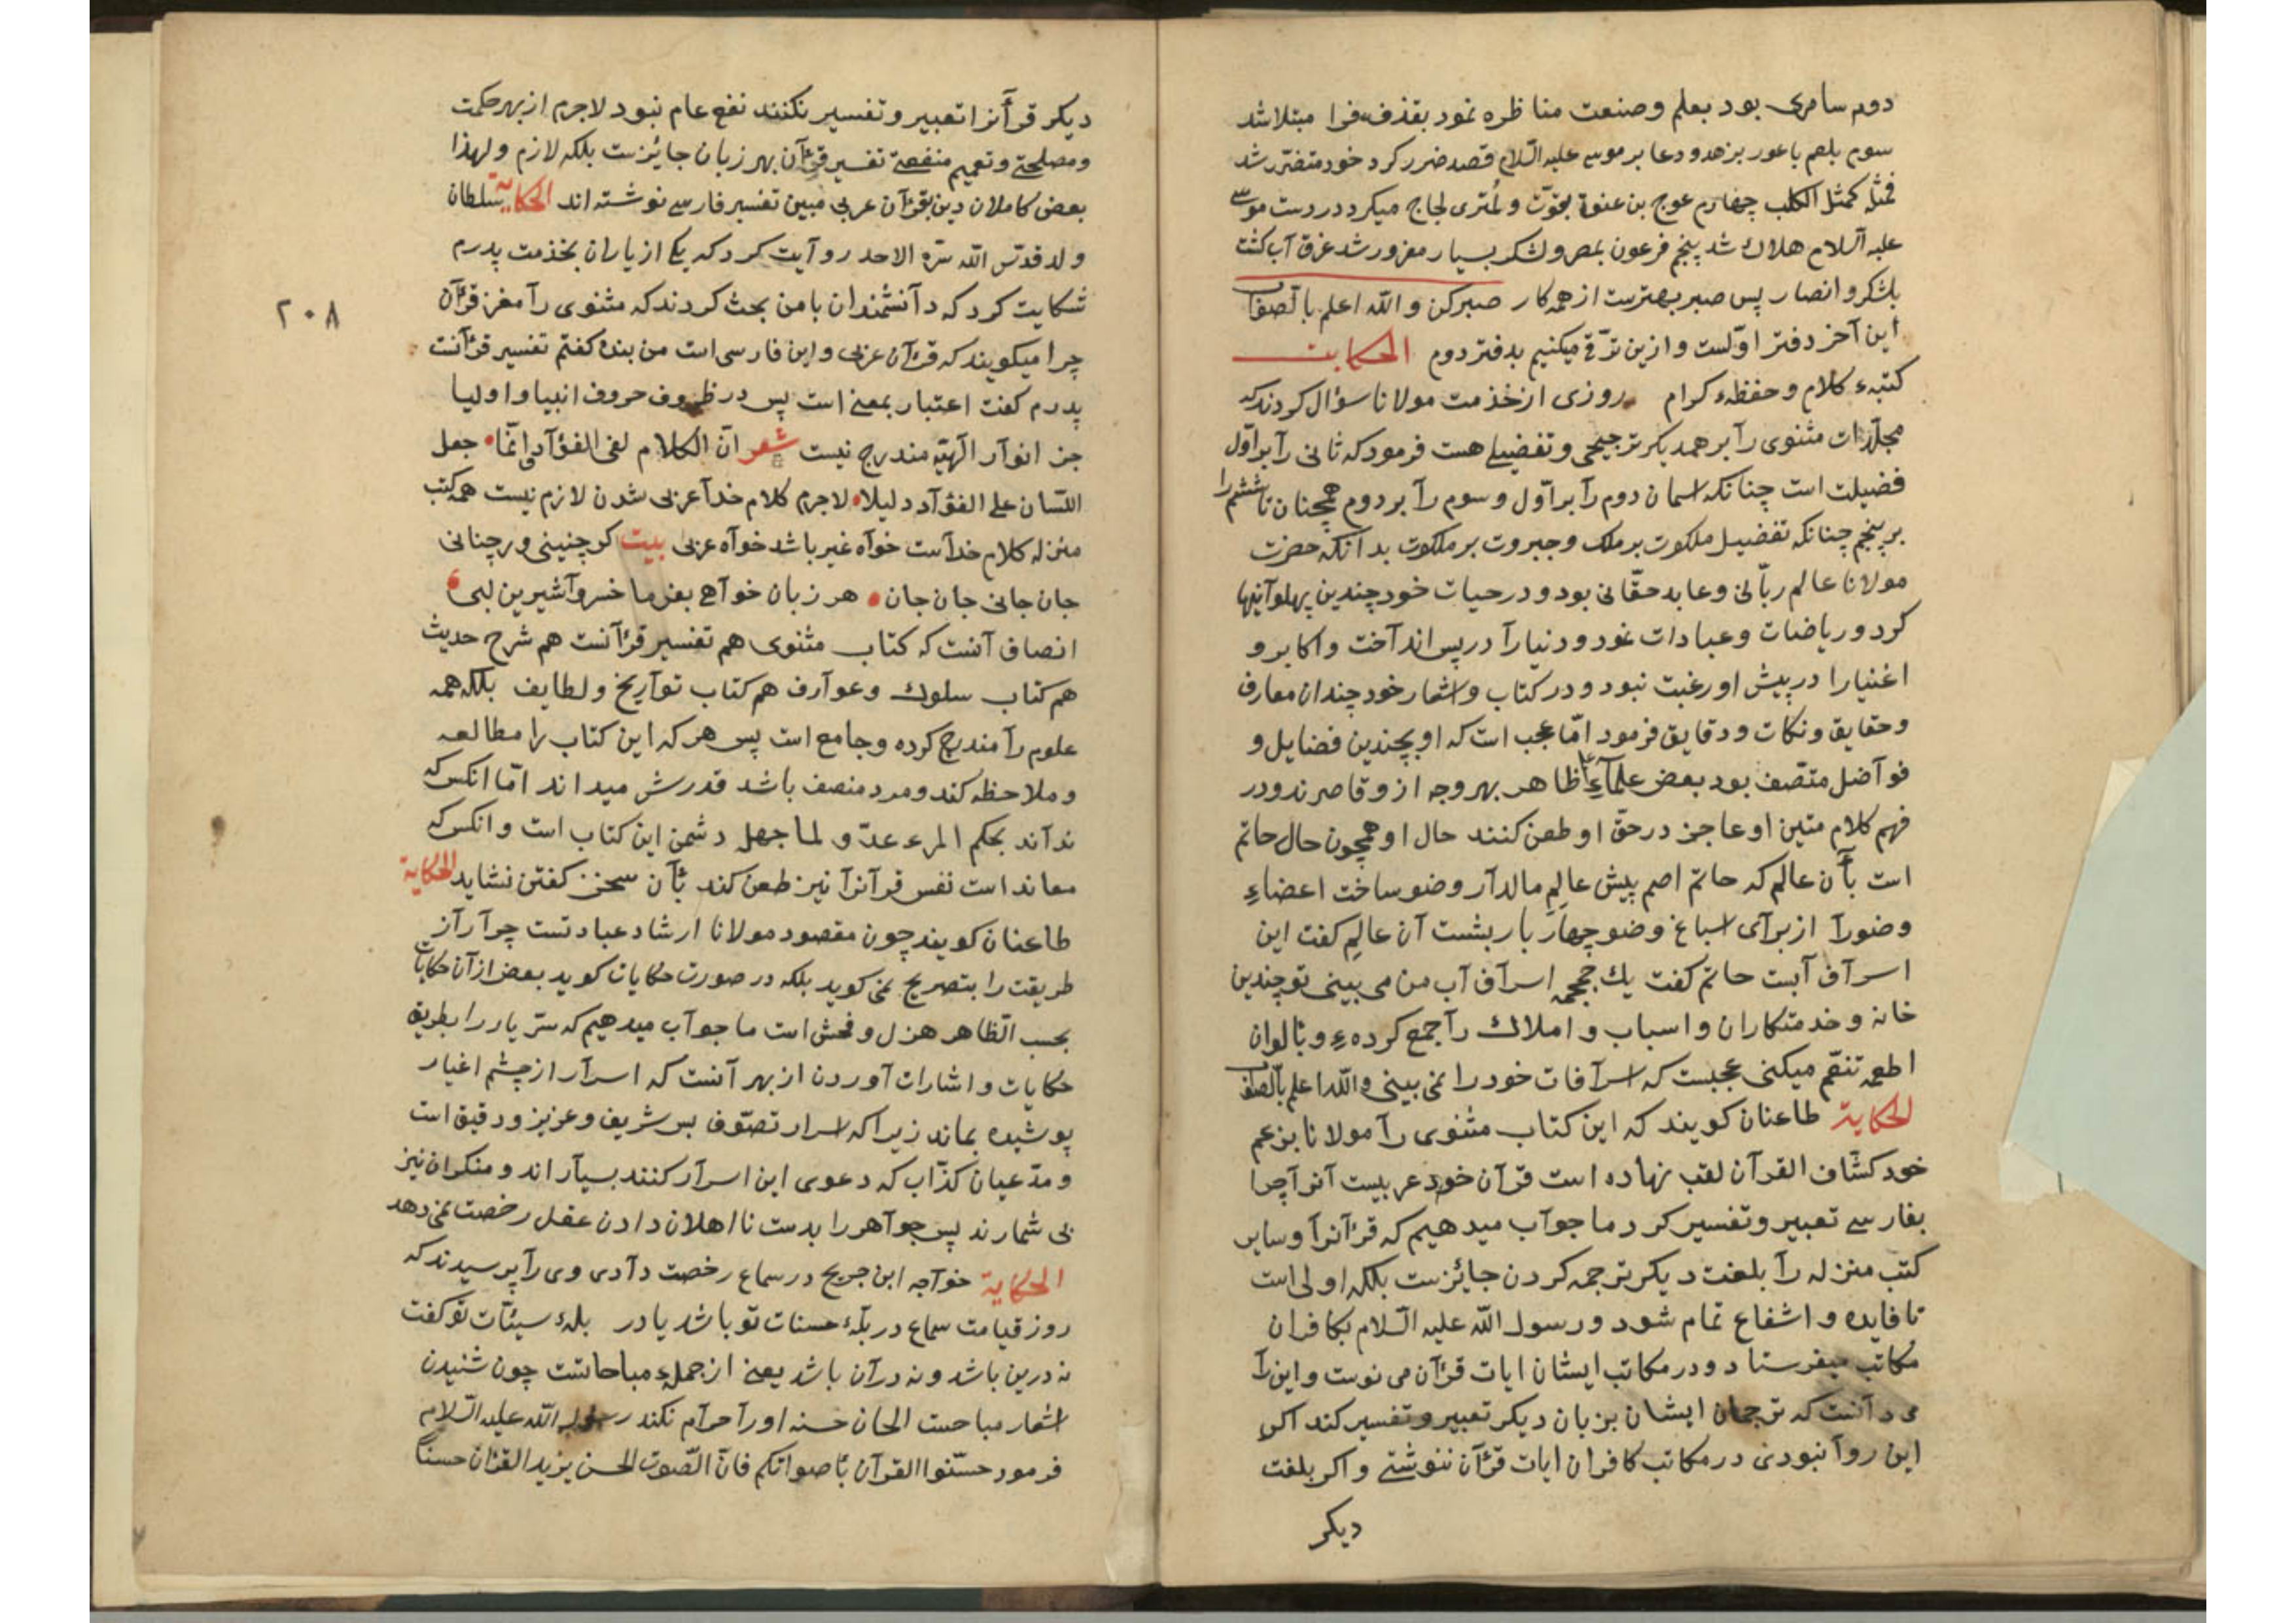 دوم سامری بود بعلم وصنعت مناظره نمود بقذف فرا مبتلا شد
سوم بلعم باعور بزهد ودعا بر موسی علیه السّلام قصد ضرر کرد خود متضرّر شد
فمثله کمثل الکلب چهارم عوج بن عنوة بقوّت و لُمتری لجاج میکرد در دست موسی
علیه السلام هلاك شد پنجم فرعون بمصر ولشکر بسیار مغرور شد غرق آب کشت
بلشکر و انصار پس صبر بهترست از همه کار صبر کن و الله اعلم بالصواب
این آخر دفتر اوّلست و ازین ترقّی میکنیم بدفتر دوم الحکایت
کتبهء کلام و حفظهء کرام روزی از خذمت مولانا سؤال کردند که
مجلّدات مثنوی رآ بر همدیکر ترجیحی و تفضیلی هست فرمود که ثانی رآ بر اوّل
فضیلت است چنانکه اسمان دوم رآ بر اوّل و سوم رآ بر دوم همچنان تا ششم را
بر پنجم چنانکه تفضیل ملکوت بر ملك وجبروت بر ملکوت بدانکه حضرت
مولانا عالم ربّانی وعابد حقّانی بود و در حیات خود چندین پهلو آنیها
کرد و ریاضات وعبادات نمود و دنیارآ در پس اندآخت واکابر و
اغنیارا در پیش او رغبت نبود و در کتاب واشعار خود چندان معارف
وحقایق ونکات ودقایق فرمود امّا عجب است که او بچندین فضایل و
فوآضل متّصف بود بعض علمآءِ ظاهر بهر وجه ازو قاصرند ودر
فهم کلام متین او عاجز در حقّ او طعن کنند حال او همچون حال حاتم
است بآن عالم که حاتم اصم پیش عالِمِ مالدآر وضو ساخت اعضاءِ
وضورآ از برآی اسباغ وضو چهار بار بشست آن عالِم کفت این
اسرآف آبست حاتم کفت یك جمجمه اسرآف آب من می بینی تو چندین
خانه وخدمتکاران واسباب و املاك رآ جمع کردهءِ و بالوان
اطعمه تنعّم میکنی عجبست که اسرآفات خود را نمی بینی والله اعلم بالصواب
الحکایة طاعنان کویند که این کتاب مثنوی رآ مولانا بزعم
خود کشّاف القرآن لقب نهاده است قرآن خود عربیست آنرآ چرا
بفارسی تعبیر وتفسیر کرد ما جوآب میدهیم که قرآنرآ وسایر
کتب منزله رآ بلغت دیکر ترجمه کردن جائزست بلکه اولی است
تا فایده و اشفاع تمام شود ورسول الله علیه السّلام بکافران
مکاتب میفرستاد ودر مکاتب ایشان ایات قرآن می نوست و این رآ
می دآنست که ترجمان ایشان بزبان دیکر تعبیر وتفسیر کند اکر
این روآ نبودی در مکاتب کافران ایات قرآن ننوشتی و اکر بلغت
دیکر
دیکر قرآنرا تعبیر وتفسیر نکنند نفع عام نبود لاجرم از بهر حکمت
ومصلحتی وتعمیم منفعتی تفسیر قرآن بهر زبان جائزست بلکه لازم ولهذا
بعض کاملان دین بقرآن عربی مبین تفسیر فارسی نوشته اند الحکایة سلطان
ولد قدّس الله سرّه الاحد روآیت کرد که یکی از یاران بخذمت پدرم
شکایت کرد که دآنشمندان با من بحث کردند که مثنوی رآ مغز قرآن
چرا میکویند که قرآن عربی و این فارسی است من بنده کفتم تفسیر قرآنست
پدرم کفت اعتبار بمعنی است پس در ظروف حروف انبیا واولیا
جز انوآر آلهیّه مندرج نیست شعر انّ الکلام لفی الفؤآد وانّما جعل
اللّسان علی الفؤآد دلیلا لاجرم کلام خدآ عربی شدن لازم نیست همه کتب
منزله کلام خدآست خوآه غیر باشد خوآه عربی بیت کر چنینی ورچنانی
جان جانی جان جان هر زبان خوآهی بفرما خسروآ شیرین لبی
انصاف آنست که کتاب مثنوی هم تفسیر قرآنست هم شرح حدیث
هم کتاب سلوك وعوآرف هم کتاب توآریخ ولطایف بلکه همه
علوم رآ مندرج کرده وجامع است پس هر که این کتاب را مطالعه
وملاحظه کند ومرد منصف باشد قدرش میداند امّا انکس که
ندآند بحکم المرء عدوّ لما جهل دشمن این کتاب است و انکس که
معاند است نفس قرآنرآ نیز طعن کند بآن سخن کفتن نشاید الحکایة
طاعنان کویند چون مقصود مولانا ارشاد عبادتست چرآ رآز
طریقت را بتصریح نمی کوید بلکه در صورت حکایات کوید بعض از آن حکایات
بحسب الظاهر هزل وفحش است ما جوآب میدهیم که سرّ یار را بطریق
حکایات و اشارات آوردن از بهر آنست که اسرآر از چشم اغیار
پوشیده بماند زیرا که اسرار تصوّف بس شریف وعزیز ودقیق است
ومدّعیان کذّاب که دعوی این اسرآر کنند بسیآر اند و منکران نیز
بی شمارند پس جوآهر را بدست نااهلان دادن عقل رخصت نمی دهد
الحکایة خوآجه ابن جریح در سماع رخصت دآدی وی رآ پرسیدند که
روز قیامت سماع در پلّهٔ حسنات تو باشد یا در پلهٔ سیئات تو کفت
نه درین باشد و نه در آن باشد یعنی از جملهء مباحاتست چون شنیدن
اشعار مباحست الحان حسنه اورآ حرآم نکند رسول الله علیه السّلام
فرمود حسّنوا القرآن بأصواتکم فانّ الصّوت الحسن یزید القرآن حسناً
٢٠٨